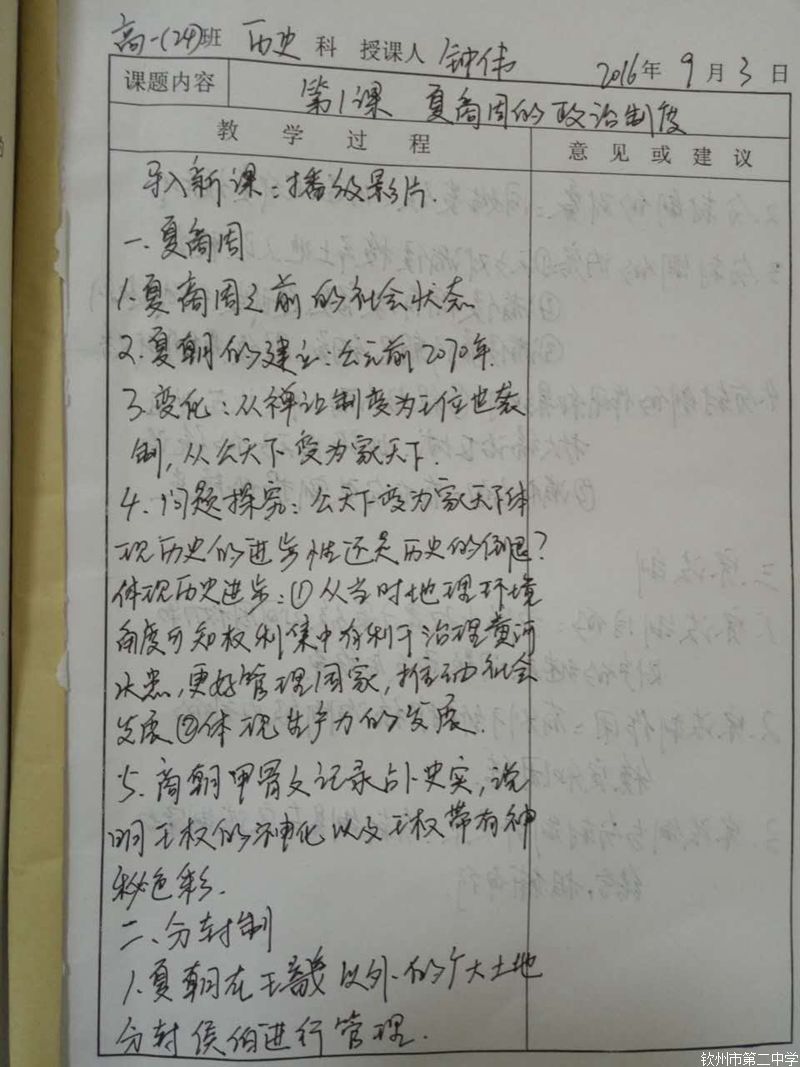 高一(24)班 历史 科 授课人 钟伟 2016年 9月 3日
课题内容 第1课 夏商周的政治制度
教 学 过 程 意 见 或 建 议
导入新课:播放影片.
一.夏商周
1.夏商周之前的社会状态
2.夏朝的建立:公元前2070年.
3.变化:从禅让制变为王位世袭
制,从公天下变为家天下.
4.问题探究:公天下变为家天下体
现历史的进步性还是历史的倒退?
体现历史进步:①从当时地理环境
角度可知权利集中有利于治理黄河
水患,更好管理国家,推动社会
发展②体现生产力的发展.
5.商朝甲骨文记录占卜史实,说
明王权的神化以及王权带有神
秘色彩.
二、分封制
1.夏朝在王畿以外的广大土地
分封侯伯进行管理.
钦州市第二中学